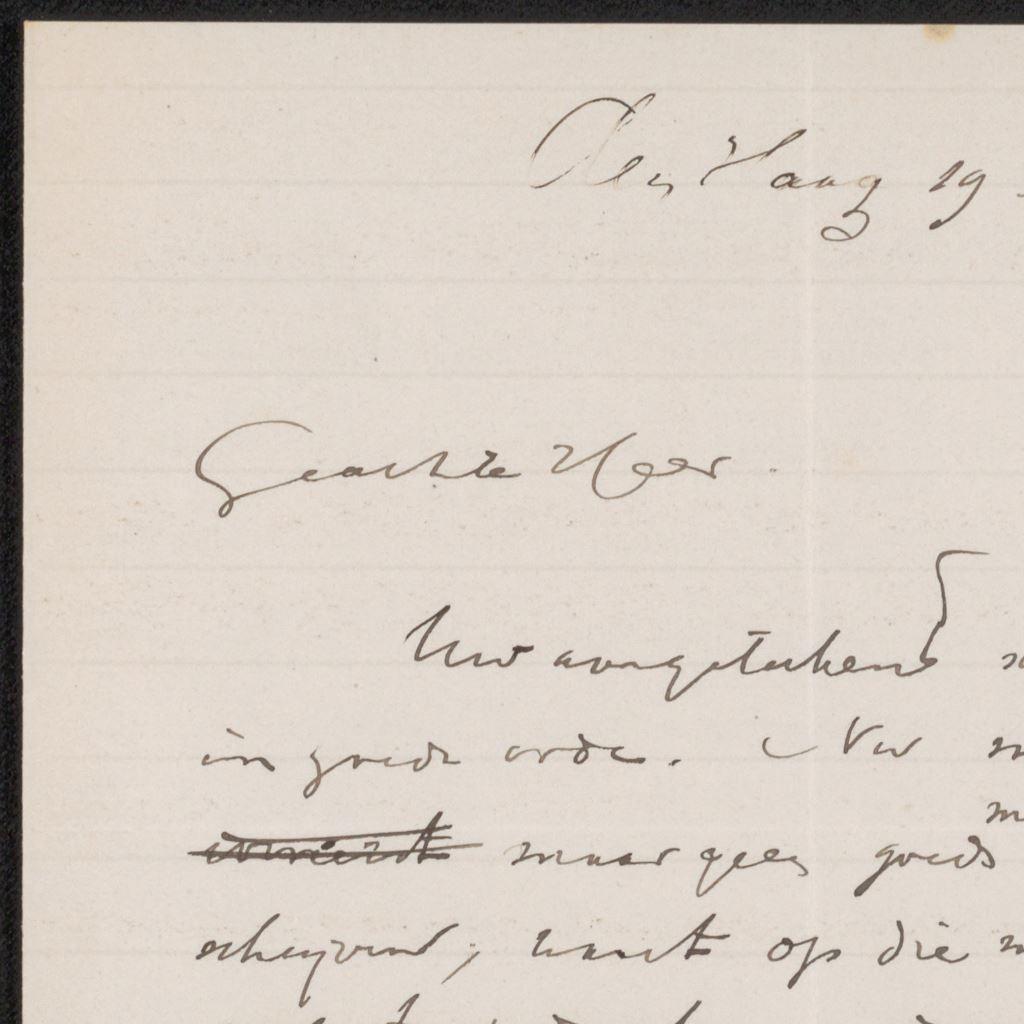 Den Haag 19
Geachte Heer.
Uw aangetekend
in goede orde. Nu
maar geen goeds
want op die